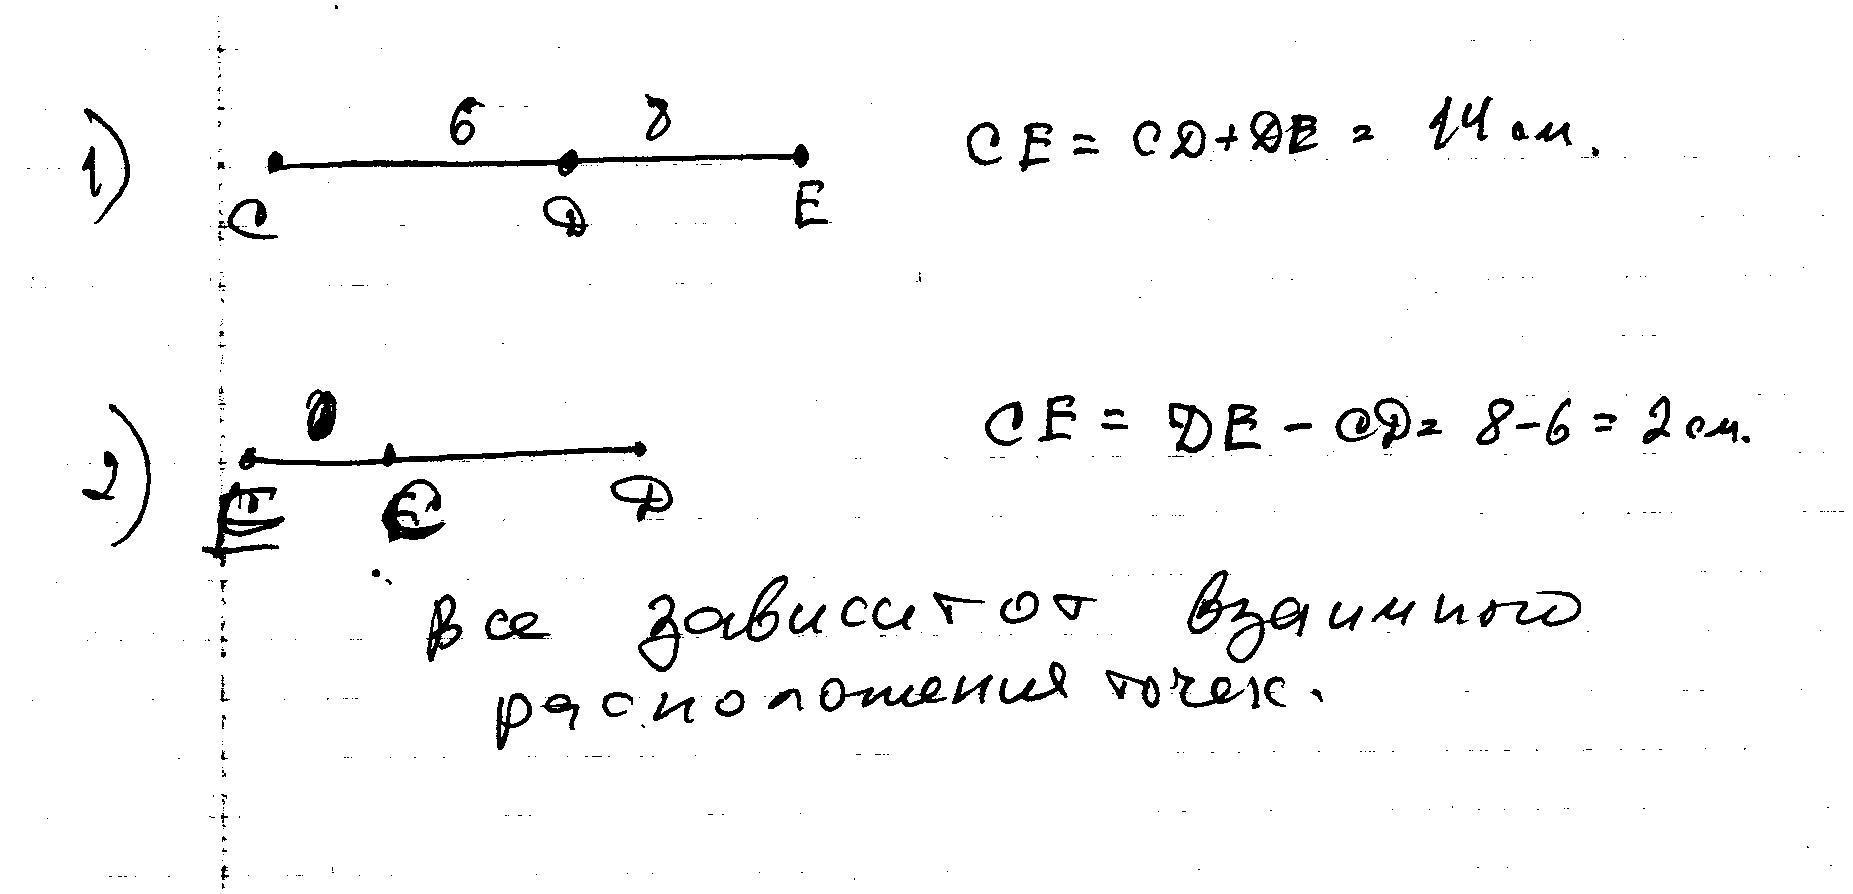 1)
6 8
C D E
CE = CD + DE = 14 см.
2)
E C D
CE = DE - CD = 8 - 6 = 2 см.
Все зависит от взаимного
расположения точек.